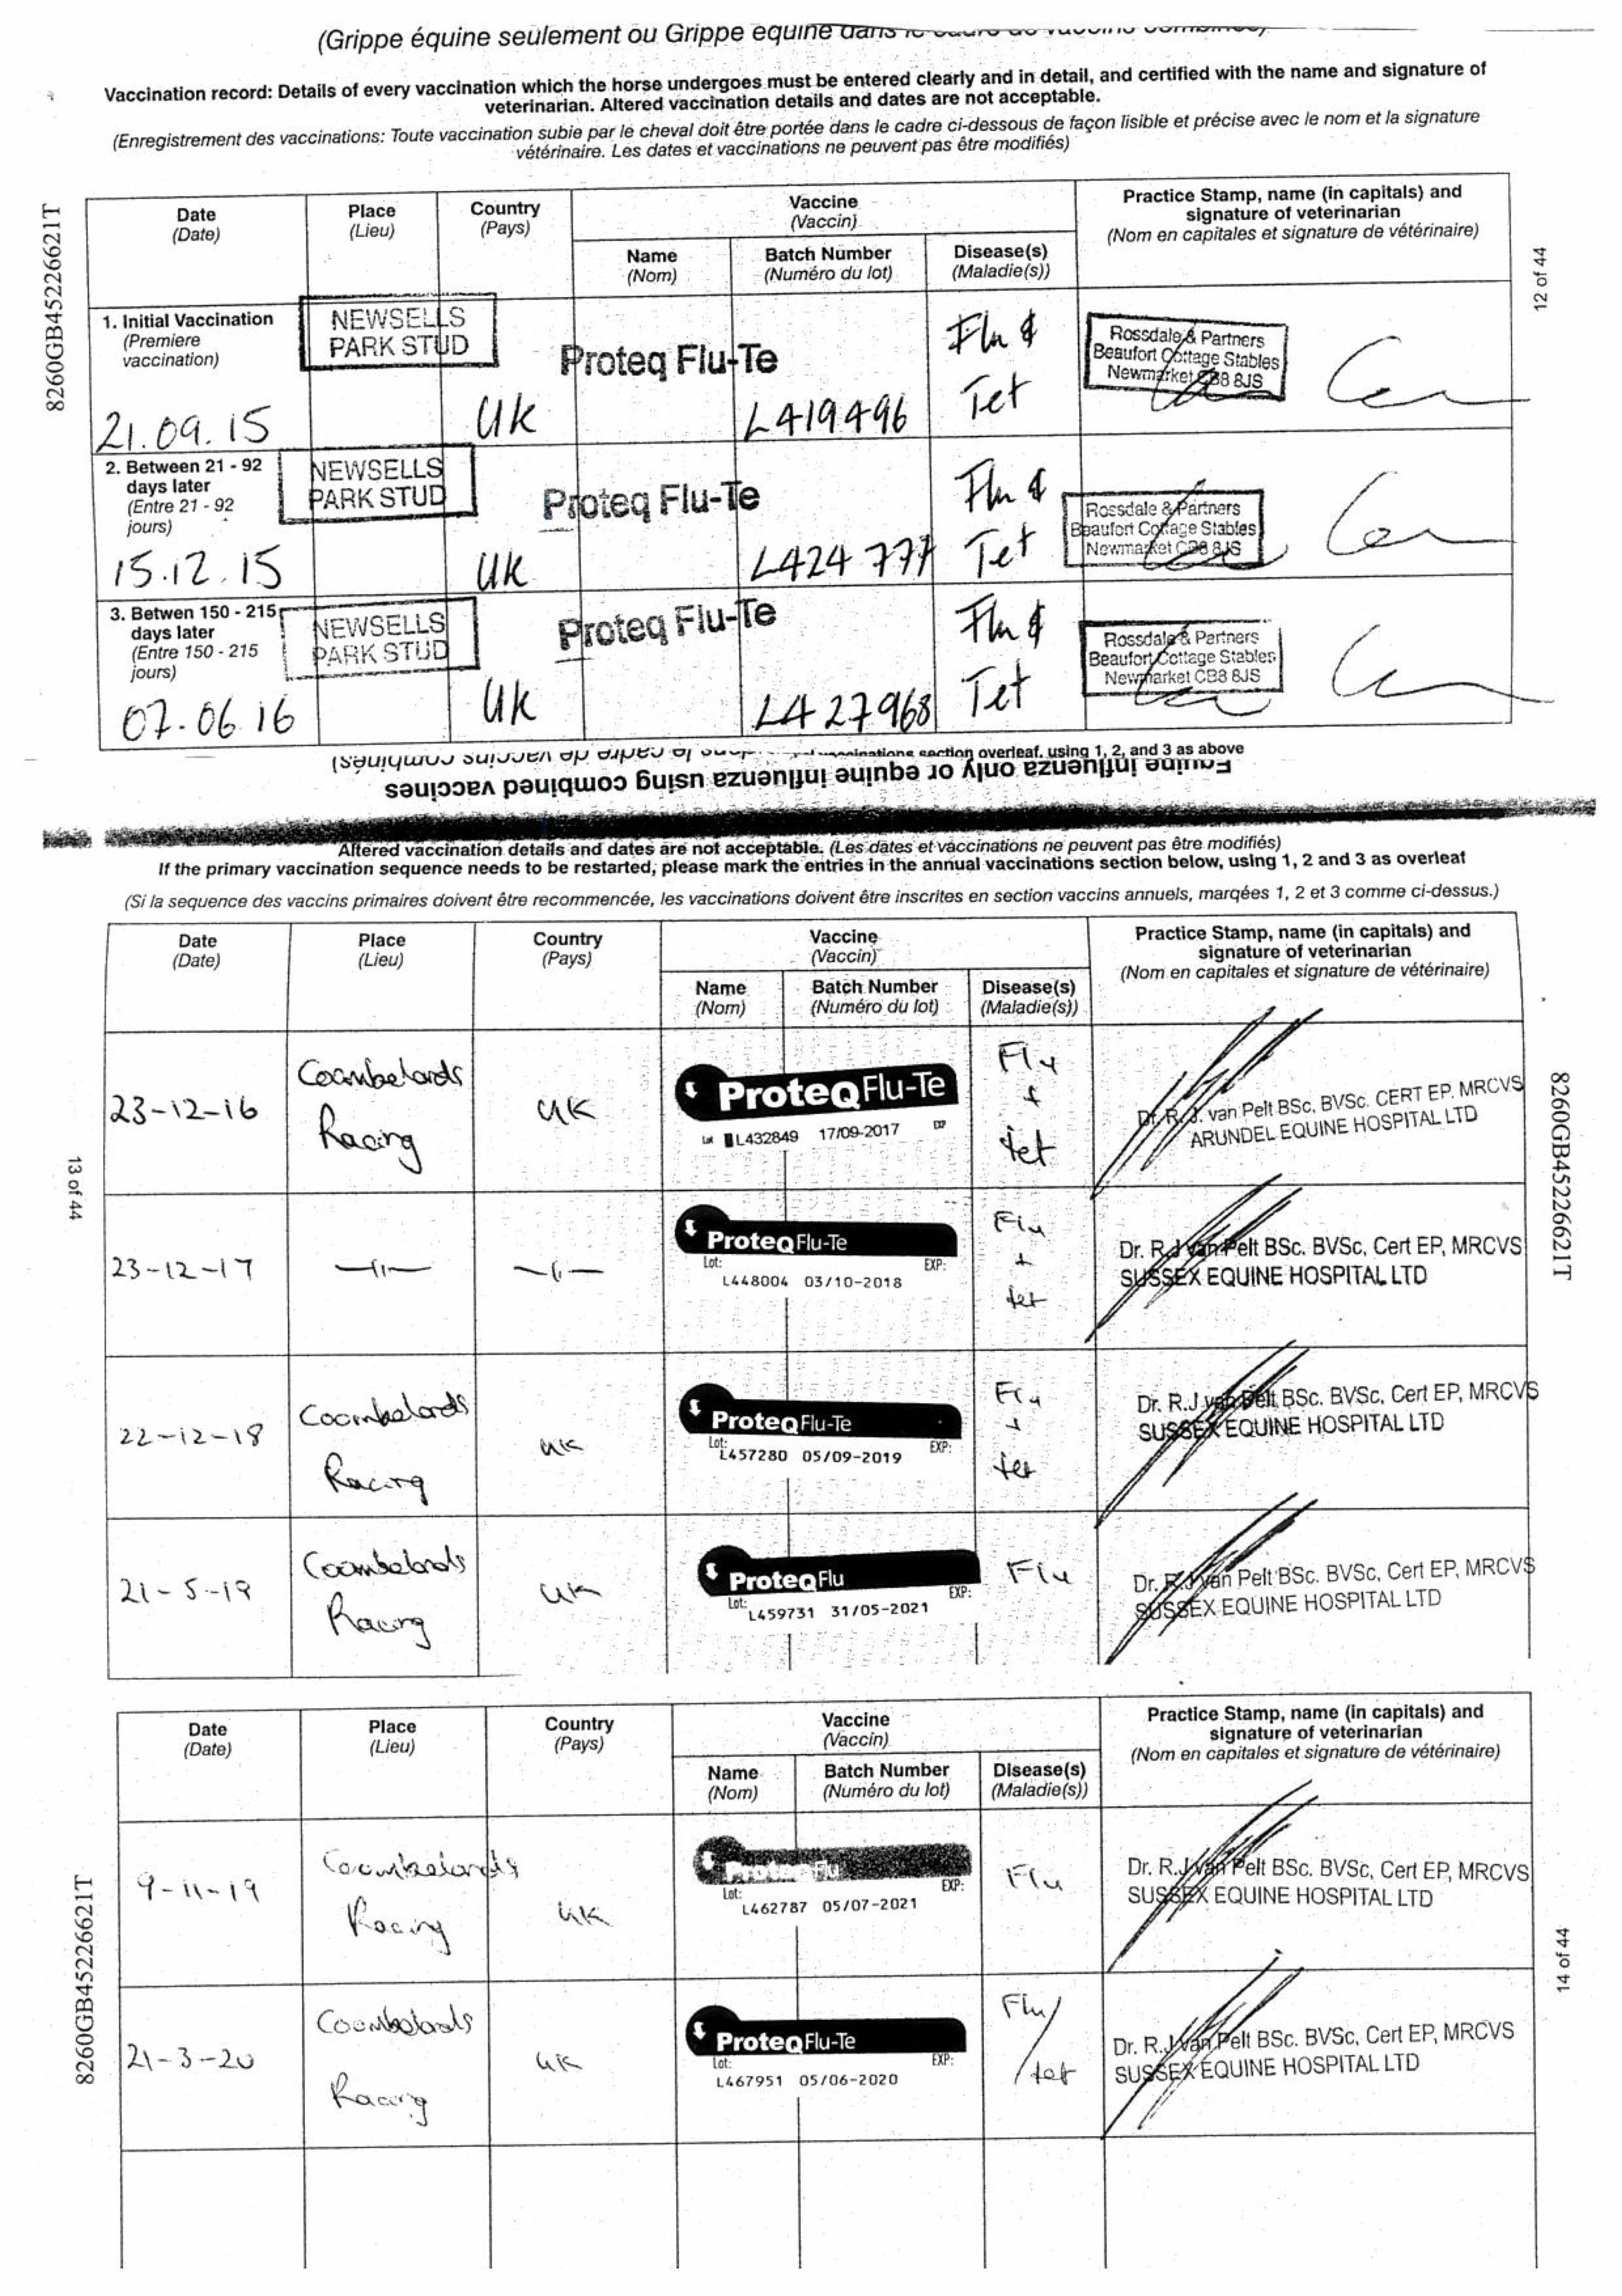 (Grippe équine seulement ou Grippe equine dans le cadre de vaccins combinés)
Vaccination record: Details of every vaccination which the horse undergoes must be entered clearly and in detail, and certified with the name and signature of
veterinarian. Altered vaccination details and dates are not acceptable.
(Enregistrement des vaccinations: Toute vaccination subie par le cheval doit être portée dans le cadre ci-dessous de façon lisible et précise avec le nom et la signature
vétérinaire. Les dates et vaccinations ne peuvent pas être modifiés)
8260GB45226621T
12 of 44
Date Place Country Vaccine Practice Stamp, name (in capitals) and
(Date) (Lieu) (Pays) (Vaccin) signature of veterinarian
(Nom en capitales et signature de vétérinaire)
Name Batch Number Disease(s)
(Nom) (Numéro du lot) (Maladie(s))
1. Initial Vaccination
(Premiere
vaccination)
21.09.15
NEWSELLS
PARK STUD
UK
Proteq Flu-Te
L419496
Flu &
Tet
Rossdale & Partners
Beaufort Cottage Stables
Newmarket CB8 8JS
2. Between 21 - 92
days later
(Entre 21 - 92
jours)
15.12.15
NEWSELLS
PARK STUD
UK
Proteq Flu-Te
L424777
Flu &
Tet
Rossdale & Partners
Beaufort Cottage Stables
Newmarket CB8 8JS
3. Betwen 150 - 215
days later
(Entre 150 - 215
jours)
07.06.16
NEWSELLS
PARK STUD
UK
Proteq Flu-Te
L427968
Flu &
Tet
Rossdale & Partners
Beaufort Cottage Stables
Newmarket CB8 8JS
section overleaf, using 1, 2, and 3 as above
Equine influenza only or equine influenza using combined vaccines
Altered vaccination details and dates are not acceptable. (Les dates et vaccinations ne peuvent pas être modifiés)
If the primary vaccination sequence needs to be restarted, please mark the entries in the annual vaccinations section below, using 1, 2 and 3 as overleaf
(Si la sequence des vaccins primaires doivent être recommencée, les vaccinations doivent être inscrites en section vaccins annuels, marqées 1, 2 et 3 comme ci-dessus.)
13 of 44
8260GB45226621T
Date Place Country Vaccine Practice Stamp, name (in capitals) and
(Date) (Lieu) (Pays) (Vaccin) signature of veterinarian
(Nom en capitales et signature de vétérinaire)
Name Batch Number Disease(s)
(Nom) (Numéro du lot) (Maladie(s))
23-12-16
Coombelands
Racing
UK
ProteqFlu-Te
Lot L432849 17/09-2017 EXP
Flu
+
tet
Dr. R.J. van Pelt BSc, BVSc. CERT EP. MRCVS
ARUNDEL EQUINE HOSPITAL LTD
23-12-17
—11—
—11—
ProteqFlu-Te
Lot: EXP:
L448004 03/10-2018
Flu
+
tet
Dr. R.J van Pelt BSc. BVSc, Cert EP, MRCVS
SUSSEX EQUINE HOSPITAL LTD
22-12-18
Coombelands
Racing
UK
ProteqFlu-Te
Lot: EXP:
L457280 05/09-2019
Flu
+
tet
Dr. R.J van Pelt BSc. BVSc, Cert EP, MRCVS
SUSSEX EQUINE HOSPITAL LTD
21-5-19
Coombelands
Racing
UK
ProteqFlu
Lot: EXP:
L459731 31/05-2021
Flu
Dr. R.J van Pelt BSc. BVSc, Cert EP, MRCVS
SUSSEX EQUINE HOSPITAL LTD
Date Place Country Vaccine Practice Stamp, name (in capitals) and
(Date) (Lieu) (Pays) (Vaccin) signature of veterinarian
(Nom en capitales et signature de vétérinaire)
Name Batch Number Disease(s)
(Nom) (Numéro du lot) (Maladie(s))
8260GB45226621T
14 of 44
9-11-19
Coombelands
Racing
UK
ProteqFlu
Lot: EXP:
L462787 05/07-2021
Flu
Dr. R.J van Pelt BSc. BVSc, Cert EP, MRCVS
SUSSEX EQUINE HOSPITAL LTD
21-3-20
Coombelands
Racing
UK
ProteqFlu-Te
Lot: EXP:
L467951 05/06-2020
Flu/
/tet
Dr. R.J van Pelt BSc. BVSc, Cert EP, MRCVS
SUSSEX EQUINE HOSPITAL LTD